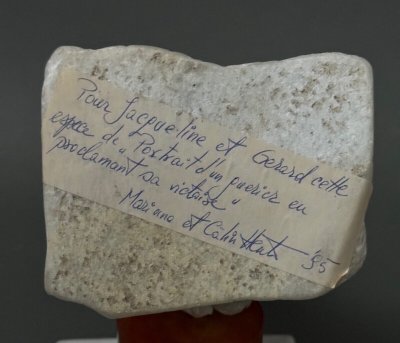 Pour Jacqueline et Gerard cette
espece de « Portrait d'un guerier en
proclamant sa victoire »
Marianna et Călin
95